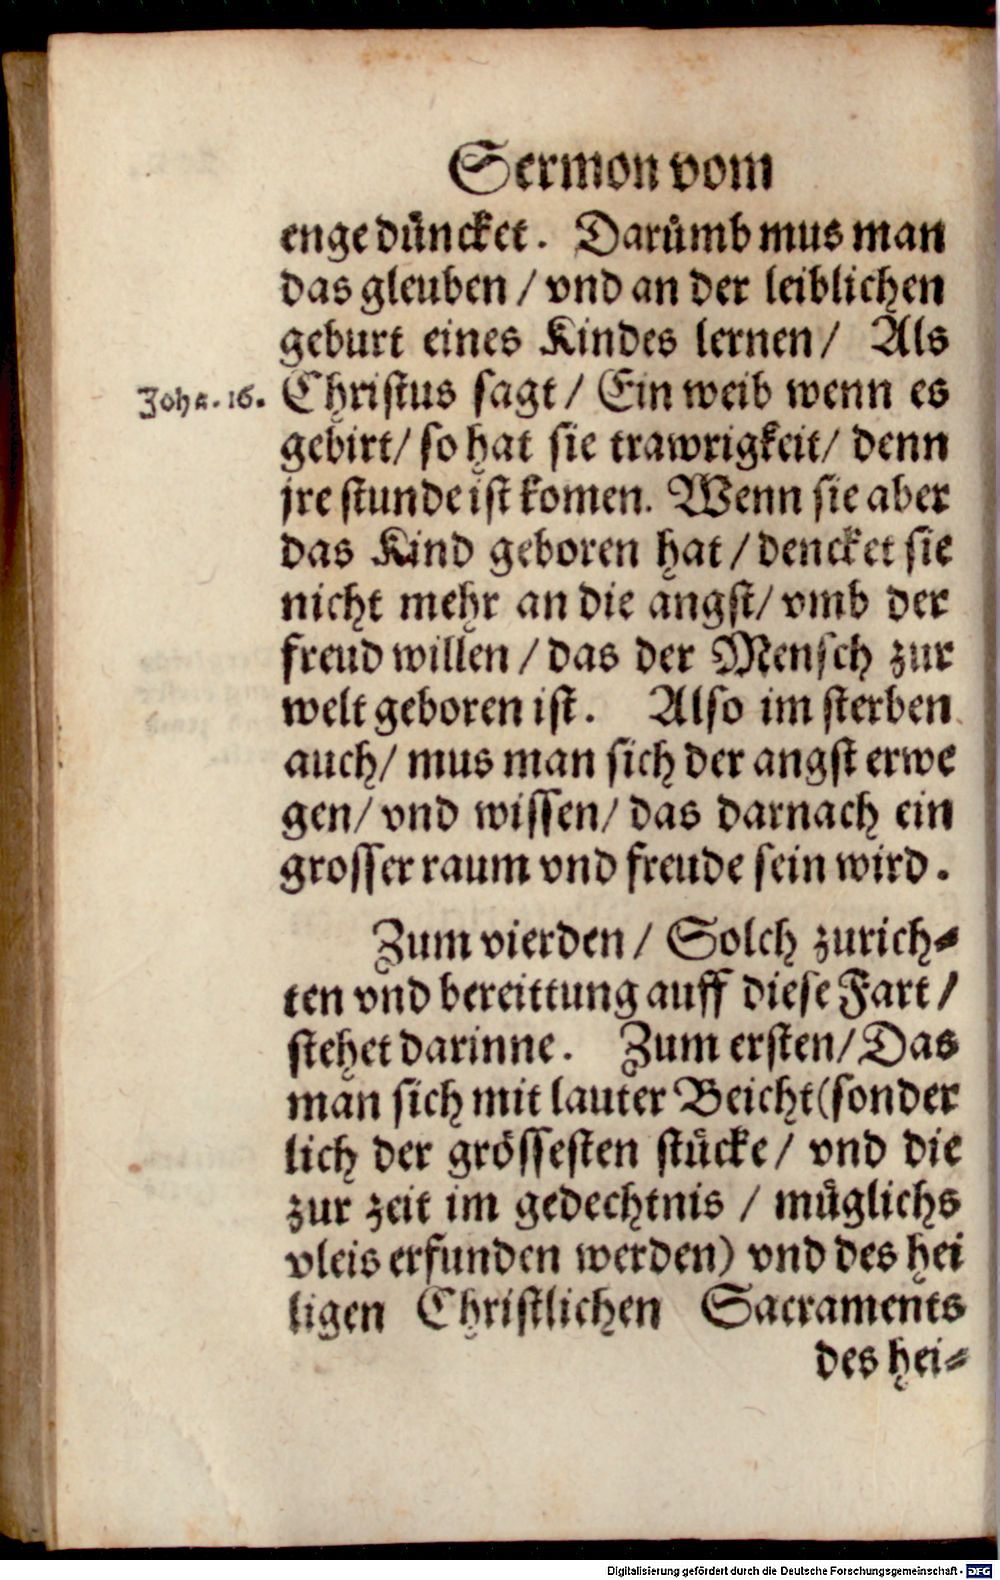 Sermon vom
enge düncket. Darümb mus man
das gleuben / vnd an der leiblichen
geburt eines Kindes lernen / Als
Johä. 16.
Christus sagt / Ein weib wenn es
gebirt / so hat sie trawrigkeit / denn
jre stunde ist komen. Wenn sie aber
das Kind geboren hat / dencket sie
nicht mehr an die angst / vmb der
freud willen / das der Mensch zur
welt geboren ist. Also im sterben
auch / mus man sich der angst erwe
gen / vnd wissen / das darnach ein
grosser raum vnd freude sein wird.
Zum vierden / Solch zurich⸗
ten vnd bereittung auff diese Fart /
stehet darinne. Zum ersten / Das
man sich mit lauter Beicht (sonder
lich der grössesten stücke / vnd die
zur zeit im gedechtnis / müglichs
vleis erfunden werden) vnd des hei
ligen Christlichen Sacraments
des hei⸗
Digitalisierung gefördert durch die Deutsche Forschungsgemeinschaft - DFG